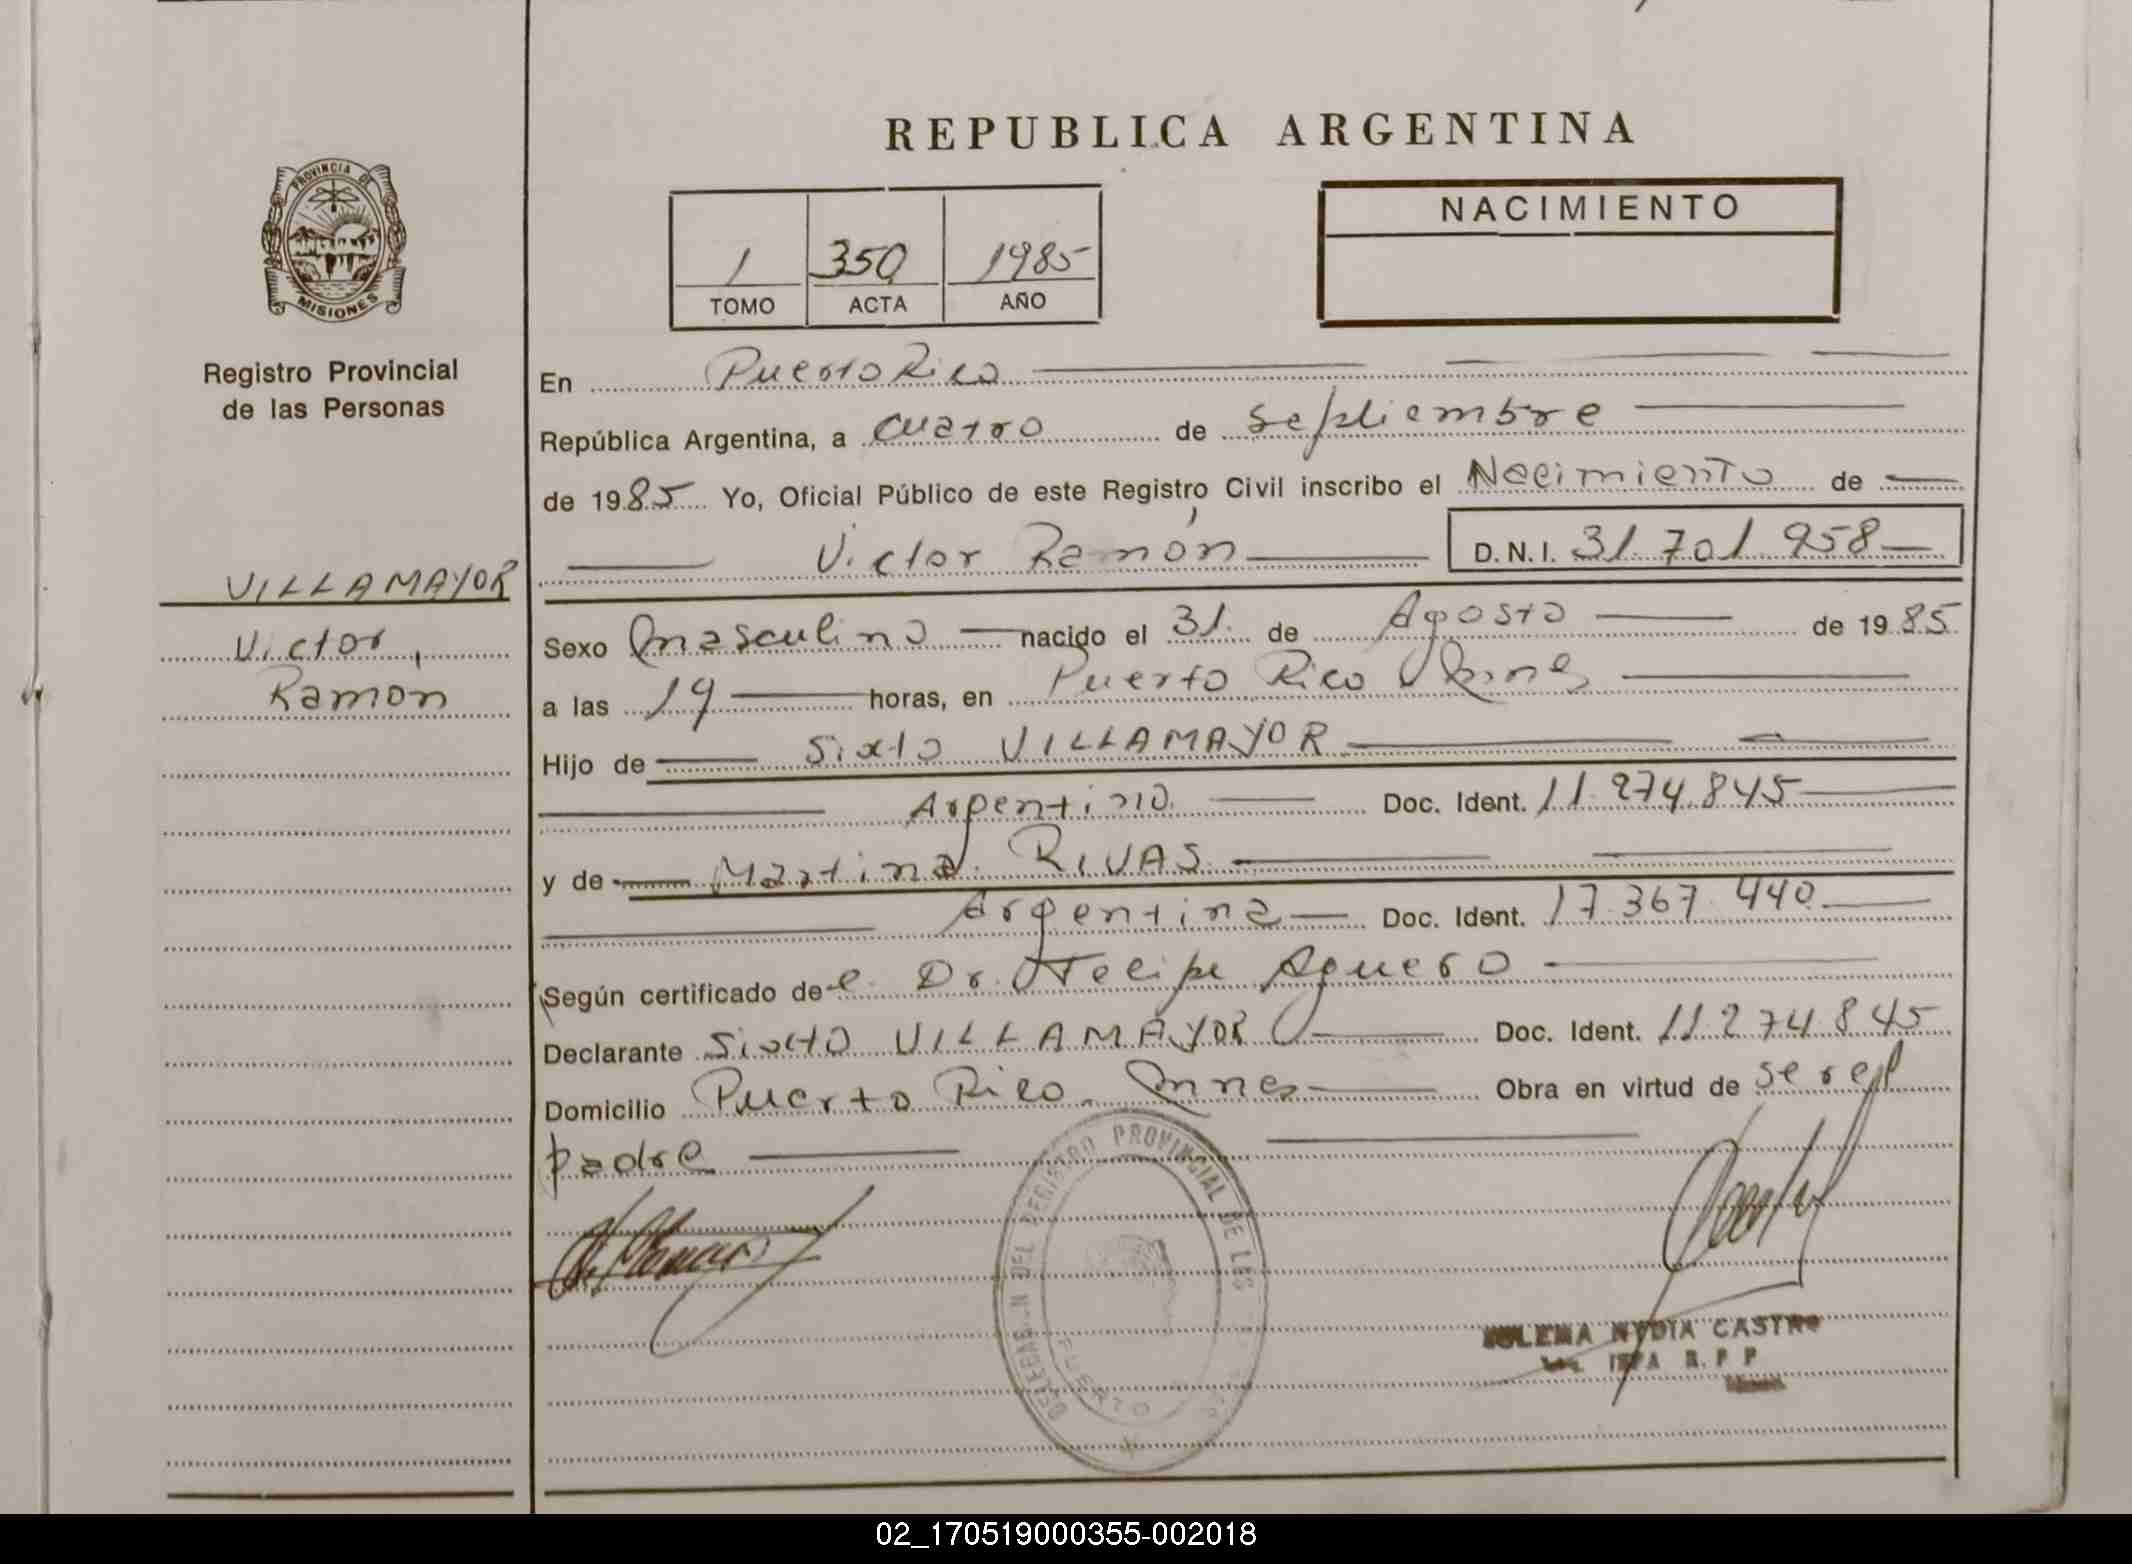 REPUBLICA ARGENTINA
PROVINCIA DE
MISIONES
Registro Provincial
de las Personas
VILLAMAYOR
Victor,
Ramon
1 350 1985
TOMO ACTA AÑO
NACIMIENTO
En Puerto Rico
República Argentina, a cuatro de septiembre
de 1985 Yo, Oficial Público de este Registro Civil inscribo el Nacimiento de
Victor Ramón D.N.I. 31.701.958
Sexo masculino nacido el 31 de Agosto de 1985
a las 19 horas, en Puerto Rico Mnes
Hijo de Sixto VILLAMAYOR
Argentino Doc. Ident. 11.274.845
y de Martina RIVAS
Argentina Doc. Ident. 17.367.440
Según certificado de Dr. Felipe Aguero
Declarante Sixto VILLAMAYOR Doc. Ident. 11274845
Domicilio Puerto Rico Mnes Obra en virtud de ser el
padre
DEL REGISTRO PROVINCIAL DE
PUERTO
NYDIA CASTRO
R. P. P.
02_170519000355-002018